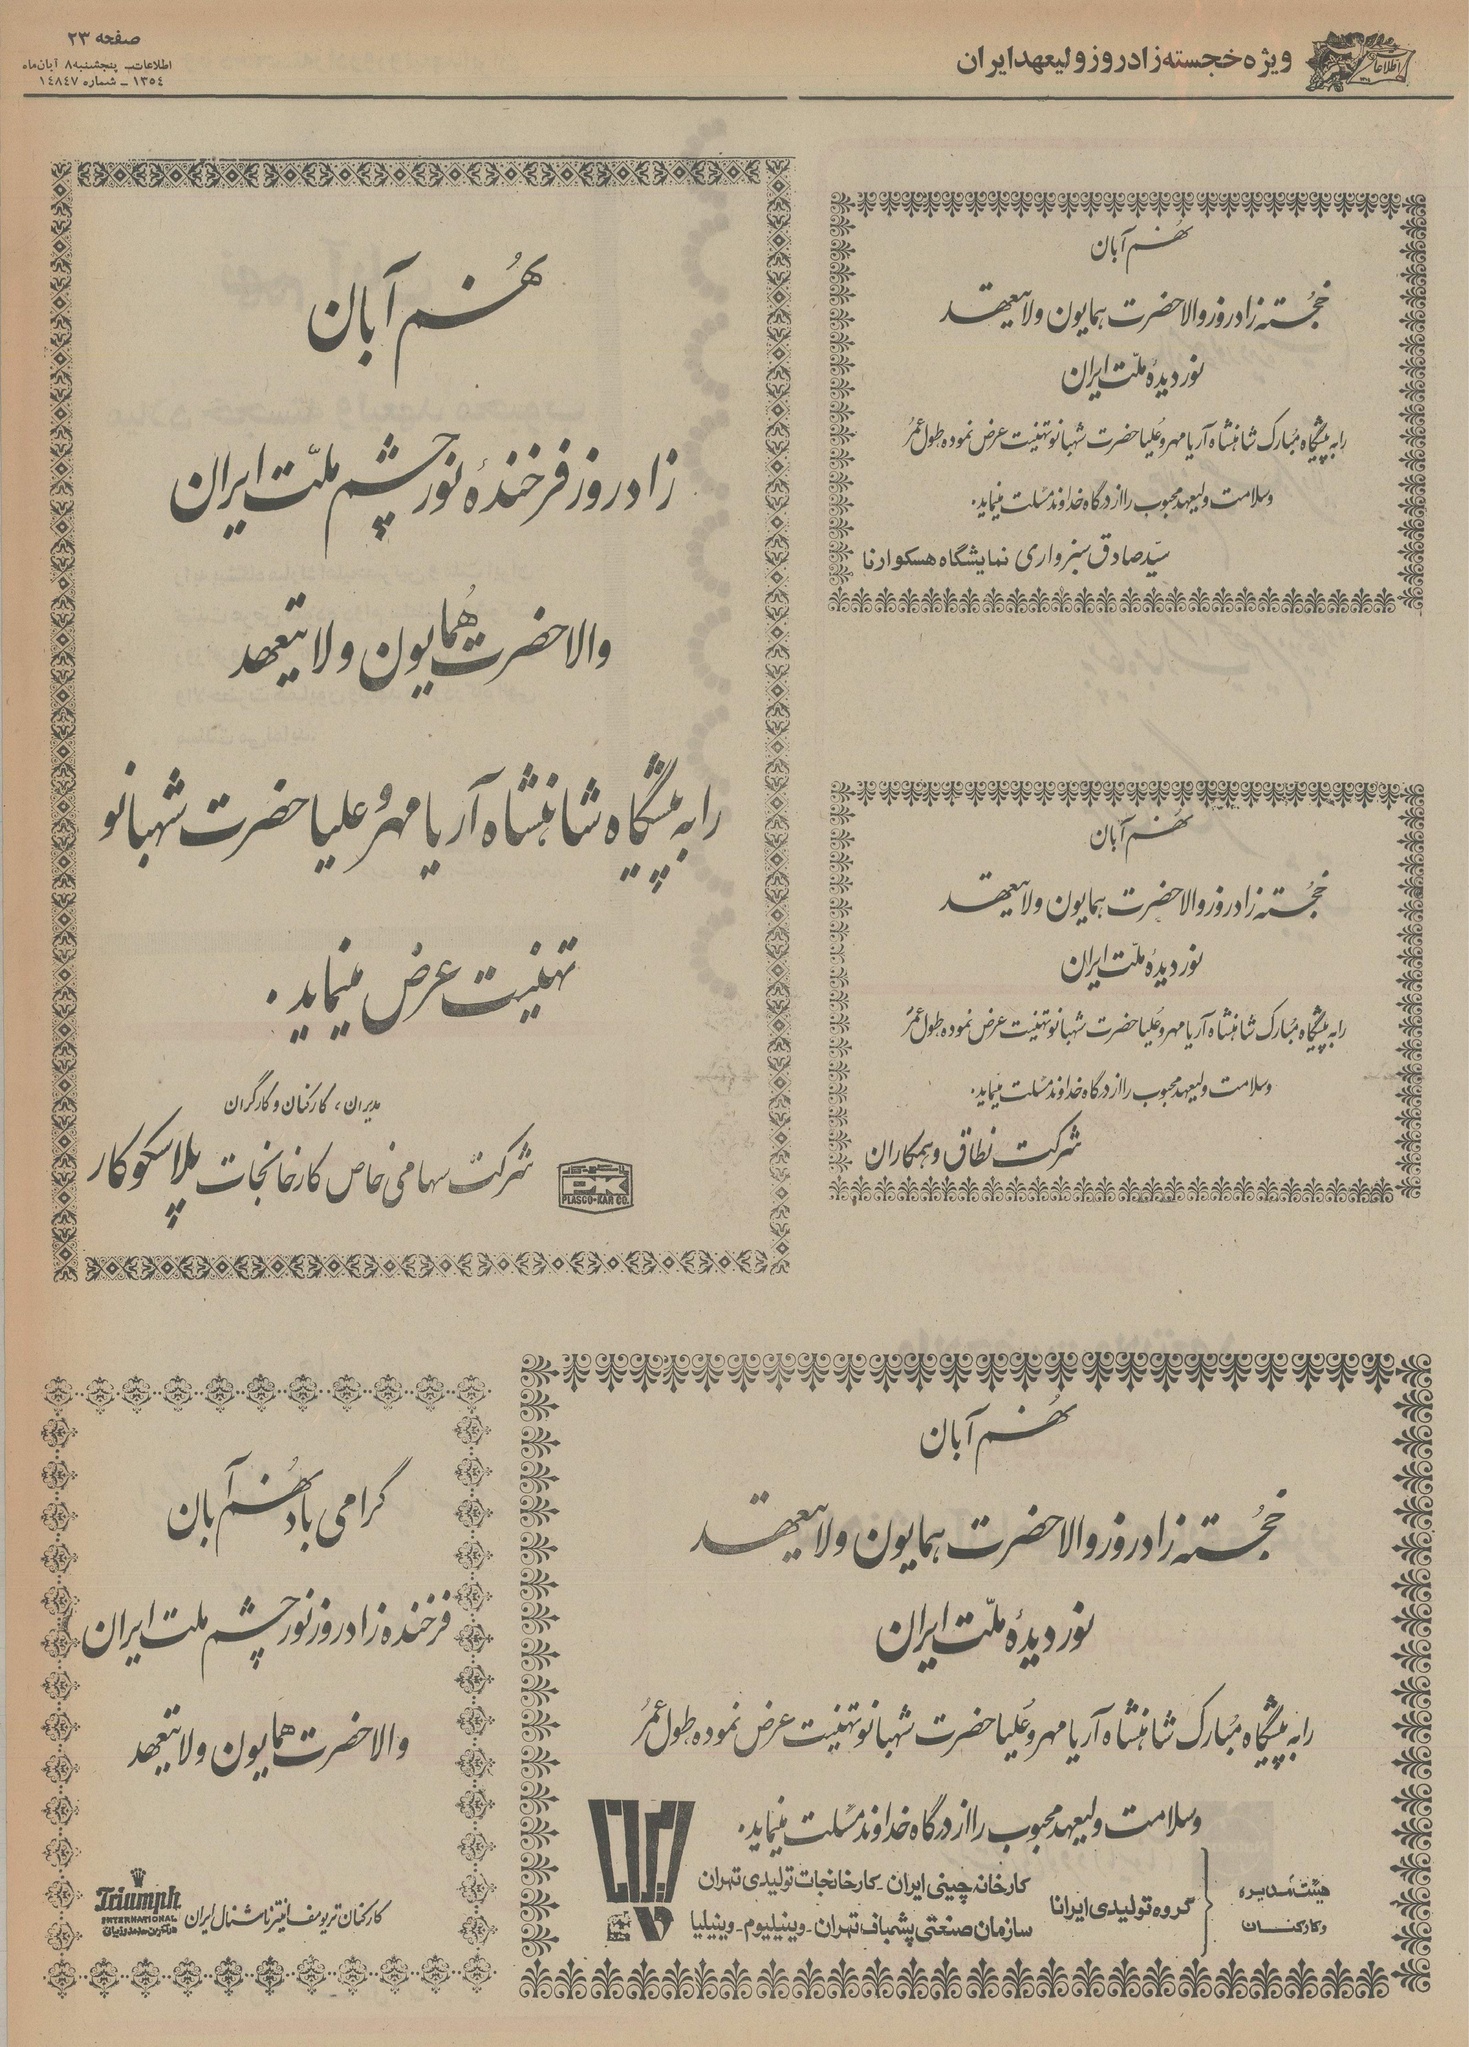 صفحه ۲۳
اطلاعات پنجشنبه ۸ آبان ماه
۱۳۵٤ - شماره ۱٤۸٤۷
اطلاعات
ویژه خجسته زادروز ولیعهد ایران
نهم آبان
خجسته زادروز والاحضرت همایون ولایتعهد
نور دیدهٔ ملّت ایران
را به پیشگاه مبارک شاهنشاه آریامهر و عُلیاحضرت شهبانو تهنیت عرض نموده طول عمر
و سلامت ولیعهد محبوب را از درگاه خداوند مسئلت مینماید.
سیّد صادق سبزواری نمایشگاه هسکو ارنا
نهم آبان
خجسته زادروز والاحضرت همایون ولایتعهد
نور دیدهٔ ملّت ایران
را به پیشگاه مبارک شاهنشاه آریامهر و عُلیاحضرت شهبانو تهنیت عرض نموده طول عمر
و سلامت ولیعهد محبوب را از درگاه خداوند مسئلت مینماید.
شرکت نطاق و همکاران
نهُم آبان
زادروز فرخندهٔ نور چشم ملّت ایران
والاحضرت همُایون ولایتعهد
را به پیشگاه شاهنشاه آریامهر و علیاحضرت شهبانو
تهنیت عرض مینماید.
مدیران، کارکنان و کارگران
شرکت سهامی خاص کارخانجات پلاسکوکار
PK
PLASCO-KAR CO.
نهُم آبان
خجسته زادروز والاحضرت همایون ولایتعهد
نور دیدهٔ ملّت ایران
را به پیشگاه مبُارک شاهنشاه آریامهر و عُلیاحضرت شهبانو تهنیت عرض نموده طول عمرُ
و سلامت ولیعهد محبوب را از درگاه خداوند مسئلت مینماید.
هیئت مدیره
و کارکنان
گروه تولیدی ایرانا
کارخانه چینی ایران - کارخانجات تولیدی تهران
سازمان صنعتی پشمباف تهران - وینیلیوم - وینیلیا
ایرانا
گرامی باد نهُم آبان
فرخنده زادروز نور چشم ملت ایران
والاحضرت همایون ولایتعهد
کارکنان تریومف اینترناشنال ایران
Triumph
INTERNATIONAL